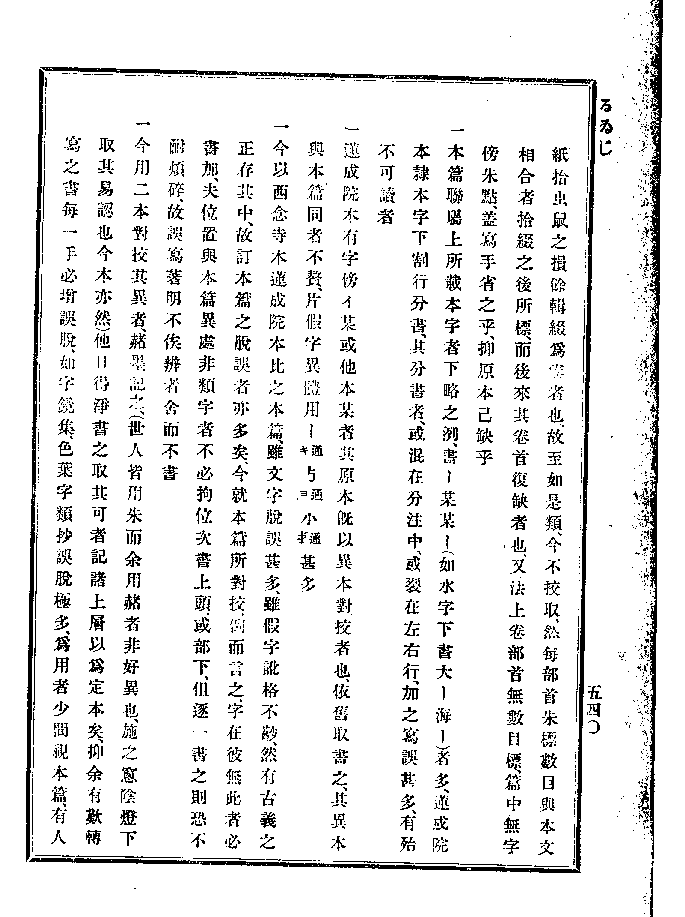 るゐじ
五四〇
紙拾虫鼠之損餘輯綴爲者也、故至如是類、今不挍取、然每部首朱標數目與本文
相合者拾綴之後所標、而後來其卷首復缺者也、又法上卷部首無數目標、篇中無字
傍朱點、蓋寫手省之乎、抑原本已缺乎
一本篇聯屬上所載本字者下略之洌、書〡某某〡(如水字下書大〡海〡)者多、蓮成院
本隷本字下割行分書、其分書者、或混在分注中、或裂在左右行、加之寫誤甚多、有殆
不可讀者
一蓮成院本有字傍イ某或他本某者其原本旣以異本對挍者也、依舊取書之、其異本
與本篇同者不贅、片假字異體用〡通キ与通ヨ小通甚多
一今以西念寺本蓮成院本比之本篇、雖文字脫誤甚多、雖假字訛格不尠、然有古義之
正存其中、故訂本篇之脫誤者亦多矣、今就本篇所對挍、而言之、字在彼無此者必
書加、夫位置與本篇異處非類字者不必拘位次書上頭、或部下、但逐一書之則恐不
耐煩碎、故誤寫著明不俟辨者舍而不書
一今用二本對挍其異者、赭墨記之(世人皆用朱而余用赭者非好異也、施之窓陰燈下
取其易認也今本亦然)他日得淨書之取其可者記諸上層以爲定本矣、抑余有歎轉
寫之書每一手必增誤脫、如字鏡集、色葉字類抄誤脫極多、爲用者少間視本篇、有人